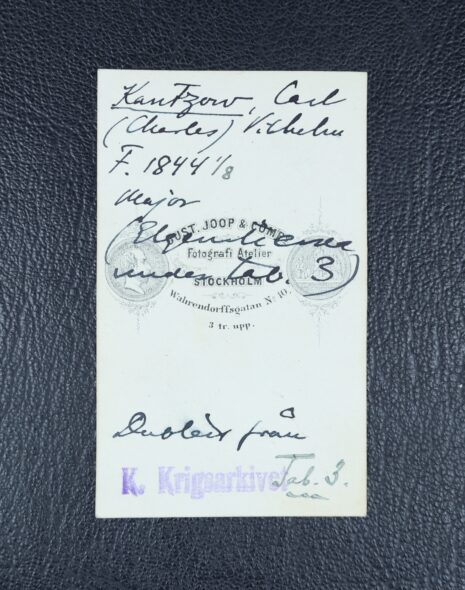 Kantzow, Carl
(Charles) Vilhelm
F. 1844 1/8
Major
GUST. JOOP & COMP.
Fotografi Atelier
STOCKHOLM
Wahrendorffsgatan No 10.
3 tr. upp.
under tab. 3)
Dublett från
K. Krigsarkivet
Tab. 3.